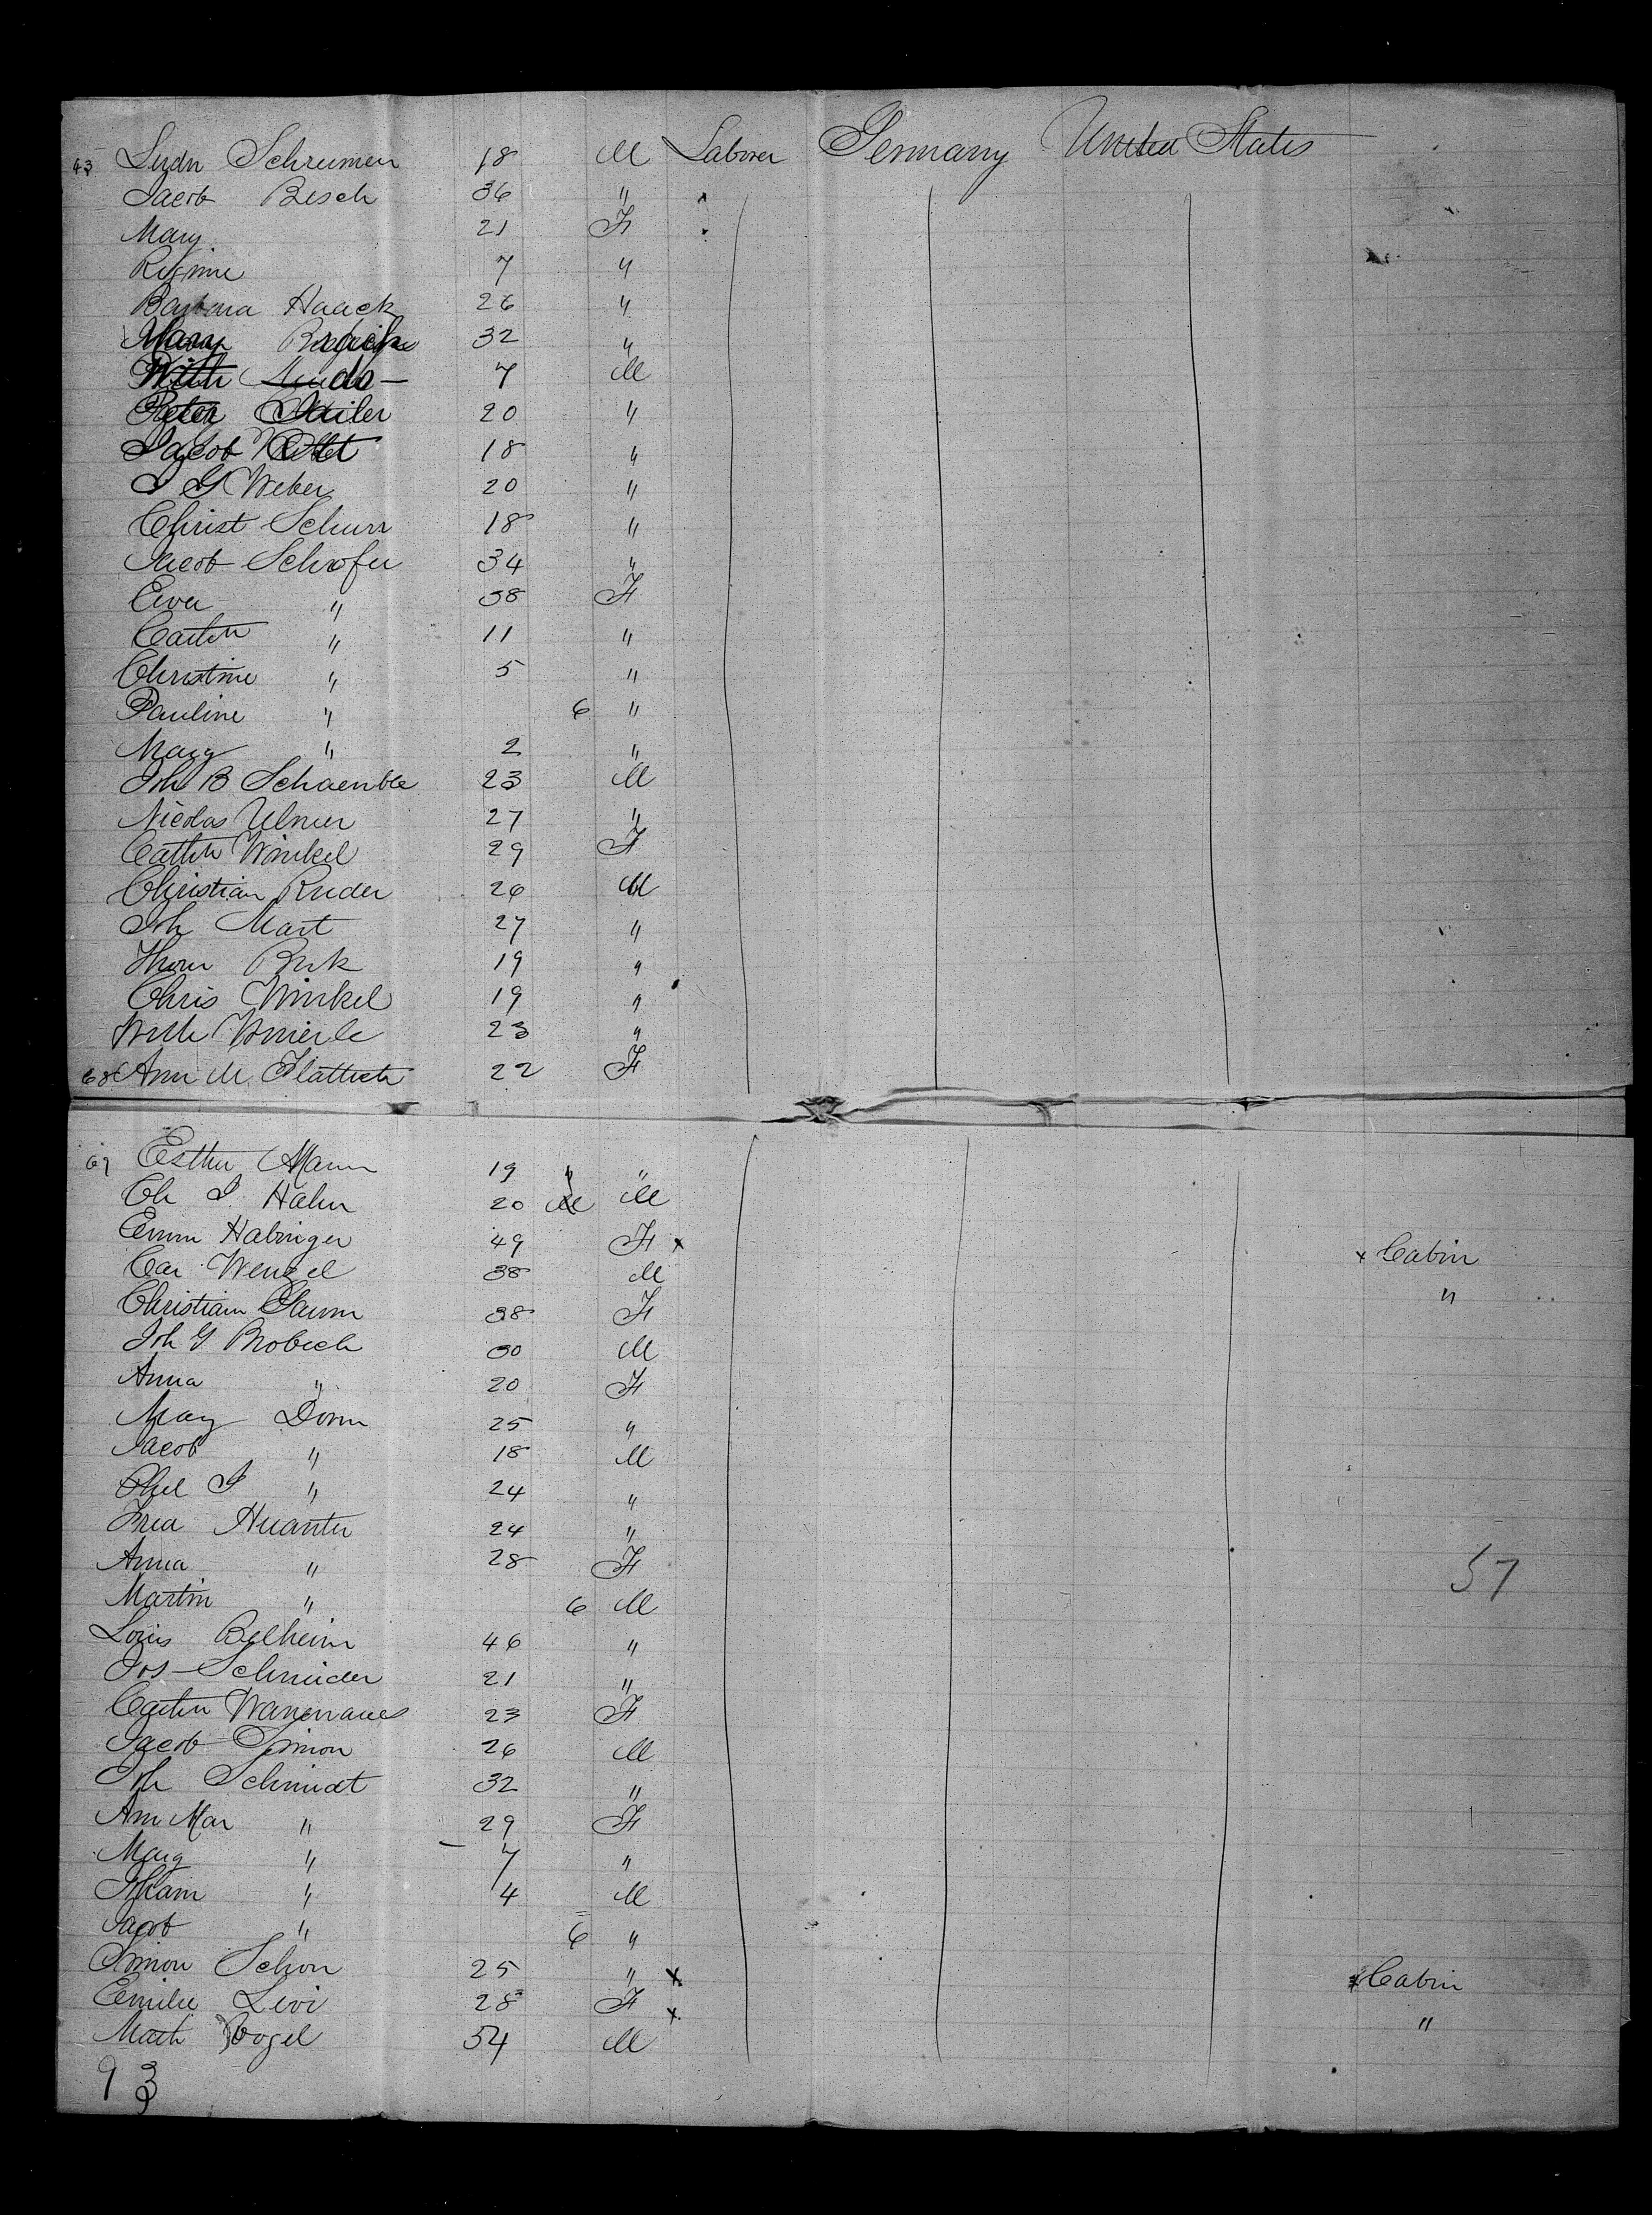 43 Ludn Schreumen 18 M Laborer Germany United States
Jacob Besch 36 "
Mary 21 F
Regine 7 "
Barbara Haack 26 "
Mary 32 "
7 M
Peter 20 "
Jacob 18 "
J G Weber 20 "
Christ Schurr 18 "
Jacob Schrofer 34 "
Eva " 38 F
Cathr " 11 "
Christine " 5 "
Pauline " 6 "
Marg " 2 "
Joh B Schaenble 23 M
Nicolas Ulmer 27 "
Cathr Winkel 29 F
Christian Ruder 26 M
Joh Mart 27 "
Thom 19 "
Chris Winkel 19 "
Wilh 23 "
68 Ann M. Flattich 22 F
69 Esther Mann 19 " "
Ch J Hahn 20 M M
Emm Habinger 49 F x x Cabin
Car Wenzel 38 M "
Christian 38 F
Joh G Brobech 30 M
Anna " 20 F
Marg Dorn 25 "
Jacob " 18 M
J " 24 "
Fred 24 "
Anna " 28 F
Martin " 6 M
57
Louis Belheim 46 "
Jos Schneider 21 "
Cathr 23 F
Jacob Simon 26 M
Joh Schmidt 32 "
Ann Mar " 29 F
Marg " 7 "
" 4 M
Jacob " 6 "
Simon Schon 25 " x x Cabin
Emilie Levi 28 F x "
Math Vogel 54 M
93